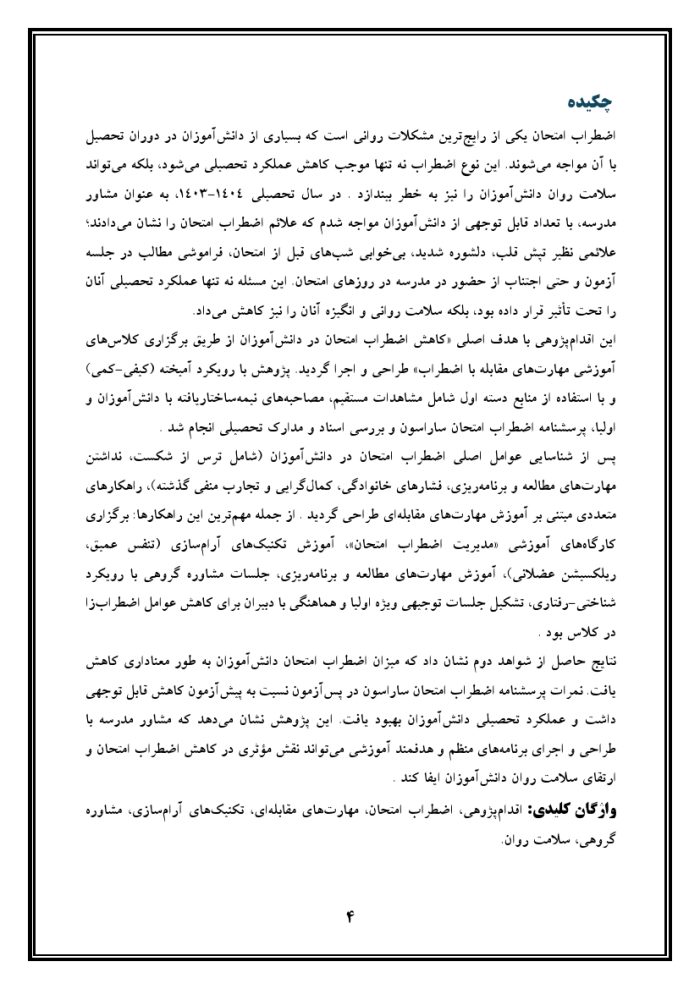 چکیده
اضطراب امتحان یکی از رایج‌ترین مشکلات روانی است که بسیاری از دانش‌آموزان در دوران تحصیل
با آن مواجه می‌شوند. این نوع اضطراب نه تنها موجب کاهش عملکرد تحصیلی می‌شود، بلکه می‌تواند
سلامت روان دانش‌آموزان را نیز به خطر بیندازد . در سال تحصیلی ۱۴۰۴-۱۴۰۳، به عنوان مشاور
مدرسه، با تعداد قابل توجهی از دانش‌آموزان مواجه شدم که علائم اضطراب امتحان را نشان می‌دادند؛
علائمی نظیر تپش قلب، دلشوره شدید، بی‌خوابی شب‌های قبل از امتحان، فراموشی مطالب در جلسه
آزمون و حتی اجتناب از حضور در مدرسه در روزهای امتحان. این مسئله نه تنها عملکرد تحصیلی آنان
را تحت تأثیر قرار داده بود، بلکه سلامت روانی و انگیزه آنان را نیز کاهش می‌داد.
این اقدام‌پژوهی با هدف اصلی «کاهش اضطراب امتحان در دانش‌آموزان از طریق برگزاری کلاس‌های
آموزشی مهارت‌های مقابله با اضطراب» طراحی و اجرا گردید. پژوهش با رویکرد آمیخته (کیفی-کمی)
و با استفاده از منابع دسته اول شامل مشاهدات مستقیم، مصاحبه‌های نیمه‌ساختاریافته با دانش‌آموزان و
اولیا، پرسشنامه اضطراب امتحان ساراسون و بررسی اسناد و مدارک تحصیلی انجام شد .
پس از شناسایی عوامل اصلی اضطراب امتحان در دانش‌آموزان (شامل ترس از شکست، نداشتن
مهارت‌های مطالعه و برنامه‌ریزی، فشارهای خانوادگی، کمال‌گرایی و تجارب منفی گذشته)، راهکارهای
متعددی مبتنی بر آموزش مهارت‌های مقابله‌ای طراحی گردید . از جمله مهم‌ترین این راهکارها: برگزاری
کارگاه‌های آموزشی «مدیریت اضطراب امتحان»، آموزش تکنیک‌های آرام‌سازی (تنفس عمیق،
ریلکسیشن عضلانی)، آموزش مهارت‌های مطالعه و برنامه‌ریزی، جلسات مشاوره گروهی با رویکرد
شناختی-رفتاری، تشکیل جلسات توجیهی ویژه اولیا و هماهنگی با دبیران برای کاهش عوامل اضطراب‌زا
در کلاس بود .
نتایج حاصل از شواهد دوم نشان داد که میزان اضطراب امتحان دانش‌آموزان به طور معناداری کاهش
یافت. نمرات پرسشنامه اضطراب امتحان ساراسون در پس‌آزمون نسبت به پیش‌آزمون کاهش قابل توجهی
داشت و عملکرد تحصیلی دانش‌آموزان بهبود یافت. این پژوهش نشان می‌دهد که مشاور مدرسه با
طراحی و اجرای برنامه‌های منظم و هدفمند آموزشی می‌تواند نقش مؤثری در کاهش اضطراب امتحان و
ارتقای سلامت روان دانش‌آموزان ایفا کند .
واژگان کلیدی: اقدام‌پژوهی، اضطراب امتحان، مهارت‌های مقابله‌ای، تکنیک‌های آرام‌سازی، مشاوره
گروهی، سلامت روان.
۴